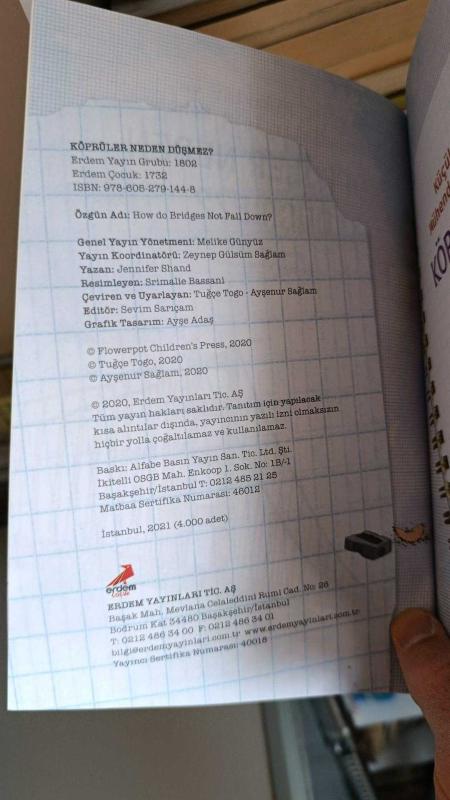 KÖPRÜLER NEDEN DÜŞMEZ?
Erdem Yayın Grubu: 1802
Erdem Çocuk: 1732
ISBN: 978-605-279-144-8
Özgün Adı: How do Bridges Not Fall Down?
Genel Yayın Yönetmeni: Melike Günyüz
Yayın Koordinatörü: Zeynep Gülsüm Sağlam
Yazan: Jennifer Shand
Resimleyen: Srimalie Bassani
Çeviren ve Uyarlayan: Tuğçe Togo - Ayşenur Sağlam
Editör: Sevim Sarıçam
Grafik Tasarım: Ayşe Adaş
© Flowerpot Children's Press, 2020
© Tuğçe Togo, 2020
© Ayşenur Sağlam, 2020
© 2020, Erdem Yayınları Tic. AŞ
Tüm yayın hakları saklıdır. Tanıtım için yapılacak
kısa alıntılar dışında, yayıncının yazılı izni olmaksızın
hiçbir yolla çoğaltılamaz ve kullanılamaz.
Baskı: Alfabe Basın Yayın San. Tic. Ltd. Şti.
İkitelli OSGB Mah. Enkoop 1. Sok. No: 1B/-1
Başakşehir/İstanbul T: 0212 485 21 25
Matbaa Sertifika Numarası: 46012
İstanbul, 2021 (4.000 adet)
erdem
çocuk
ERDEM YAYINLARI TİC. AŞ
Başak Mah. Mevlana Celaleddini Rumi Cad. No: 26
Bodrum Kat 34480 Başakşehir/İstanbul
T: 0212 486 34 00 F: 0212 486 34 01
bilgi@erdemyayinlari.com.tr www.erdemyayinlari.com.tr
Yayıncı Sertifika Numarası: 40018